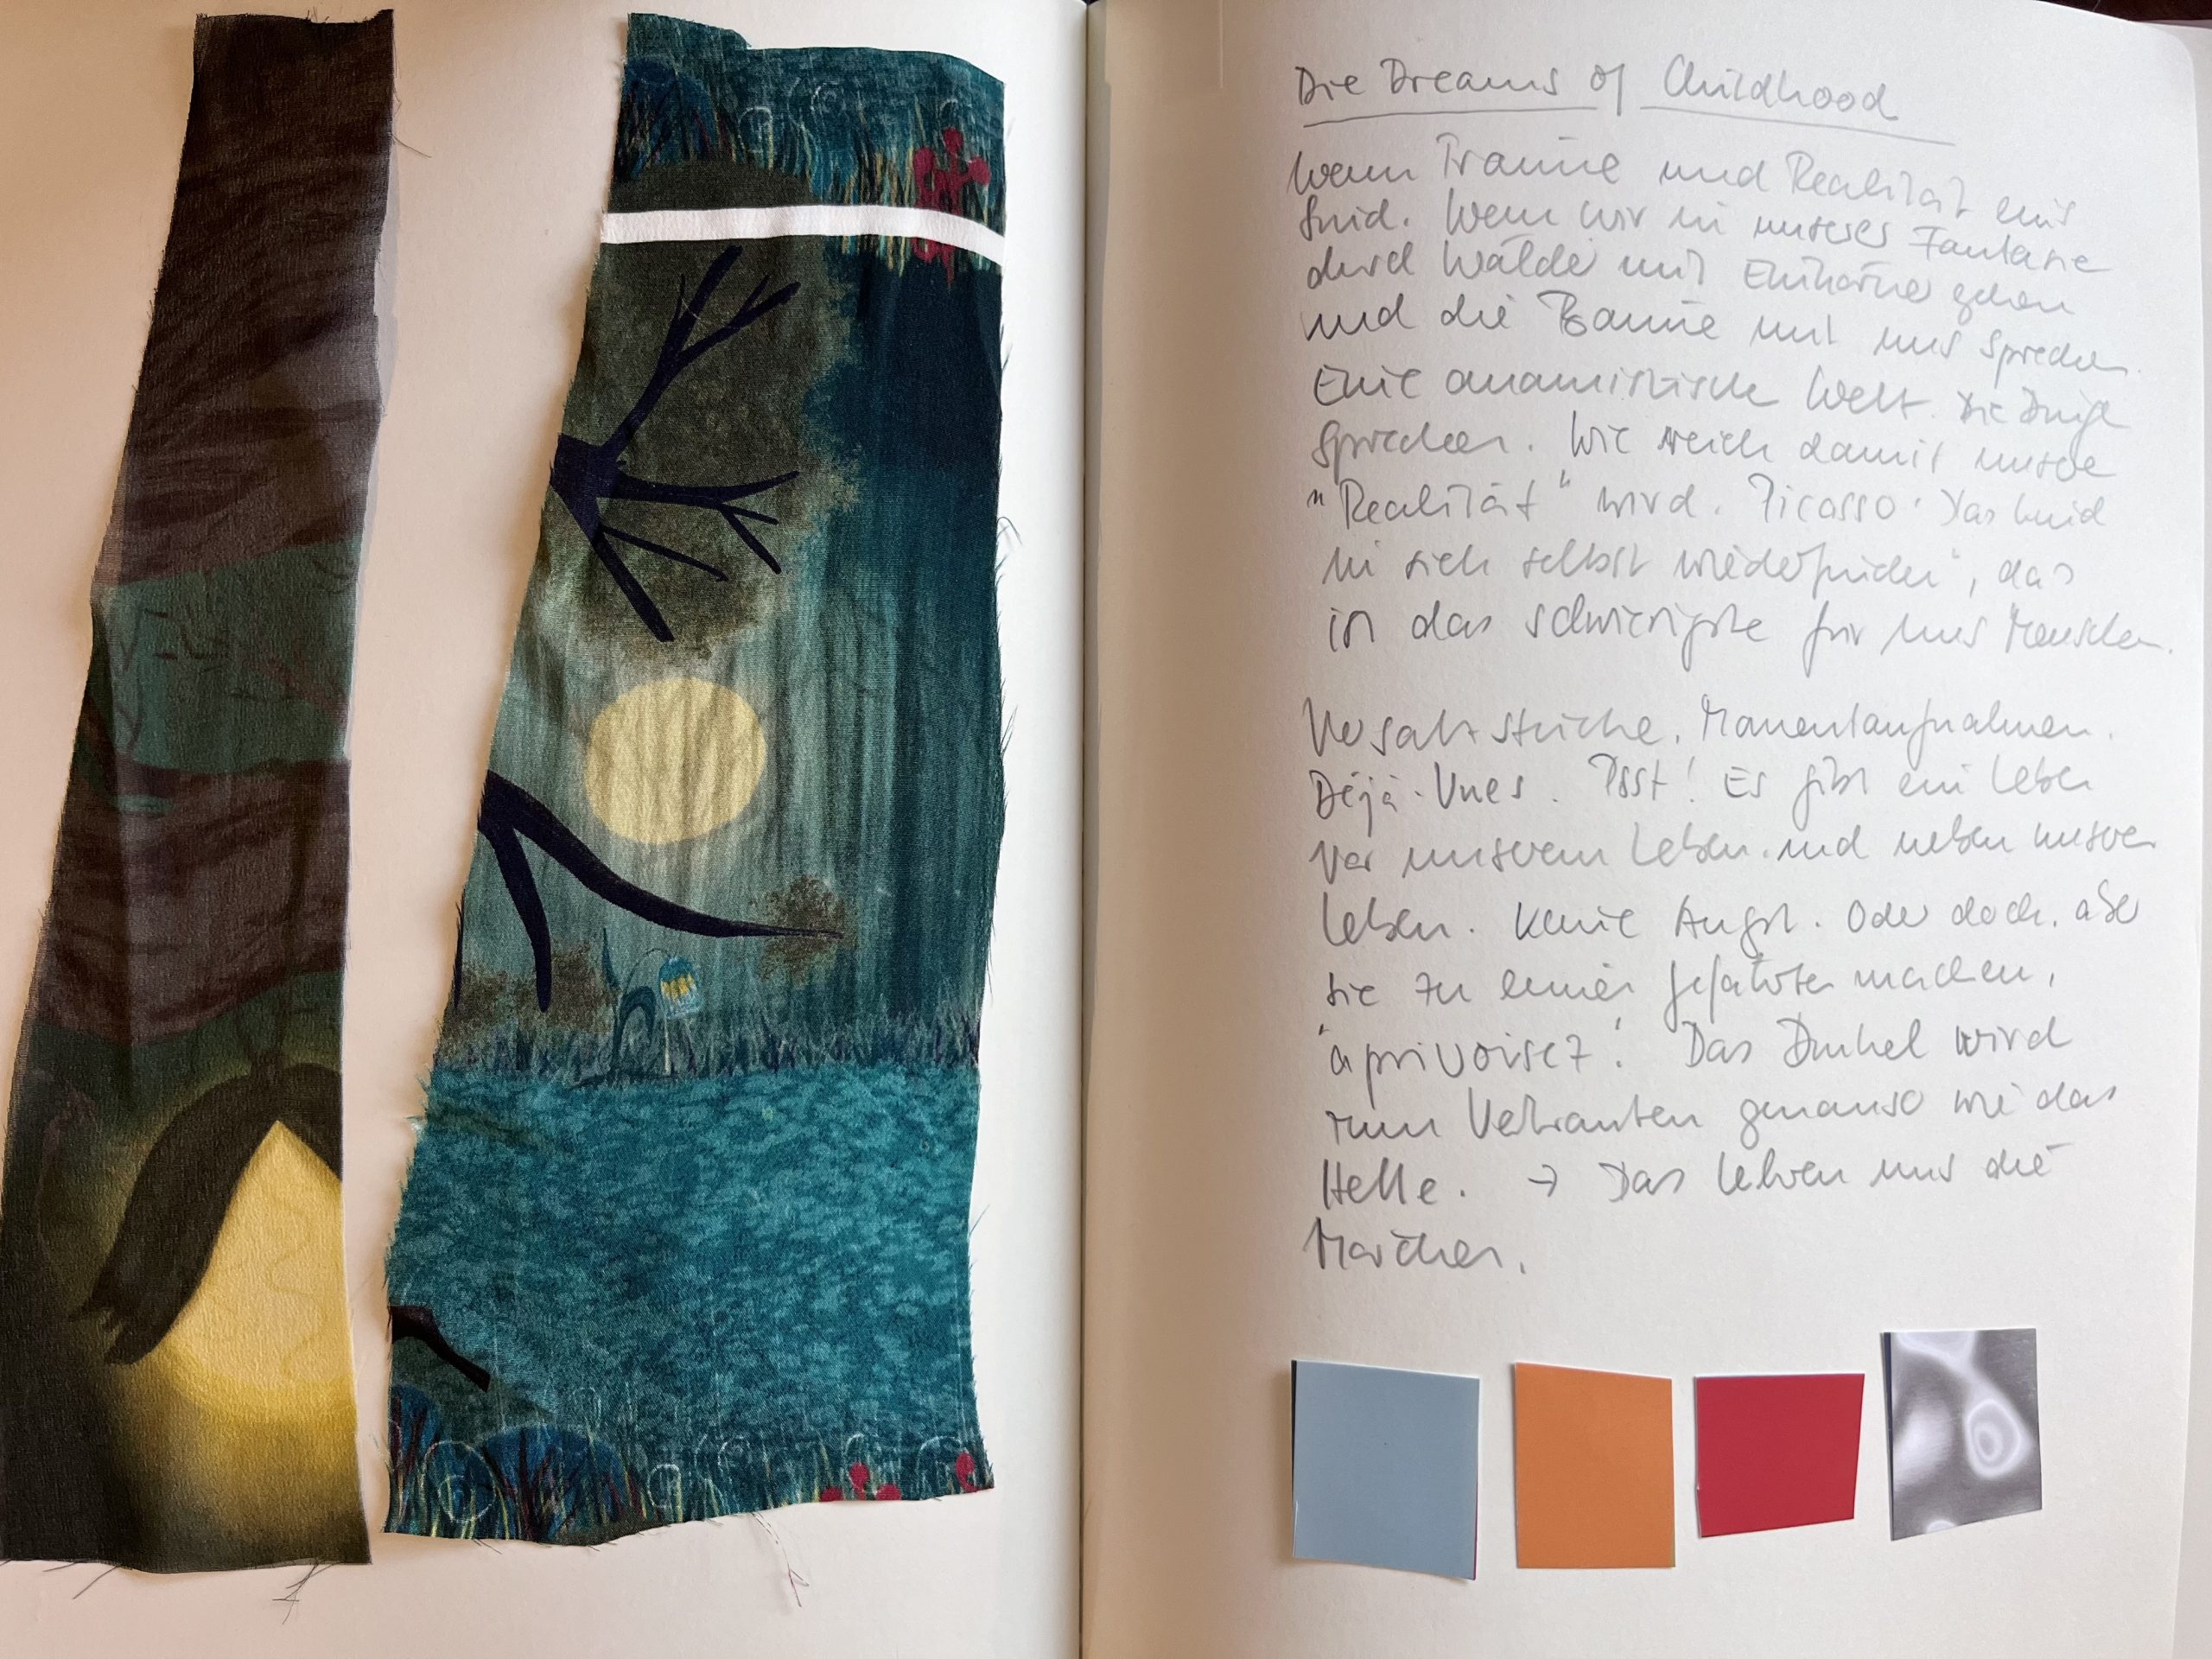 Die Dreams of Childhood
Wenn Träume und Realität eins
sind. Wenn wir in unserer Fantasie
durch Wälder mit Einhörner gehen
und die Bäume mit uns sprechen.
Eine anamistische Welt. Die Dinge
sprechen. Wie reich damit unsere
"Realität" wird. Picasso: Das Kind
in sich selbst wiederfinden", das
ist das schwierigste für uns Menschen.
Versatzstücke. Momentaufnahmen.
Déjà-Vues. Pssst! Es gibt ein Leben
vor unserem Leben. und neben unserem
Leben. Keine Angst. Oder doch, aber
sie zu einer Gefährtin machen,
"aprivoisez". Das Dunkel wird
zum Vertrauten genauso wie das
Helle. → Das lehren uns die
Märchen.